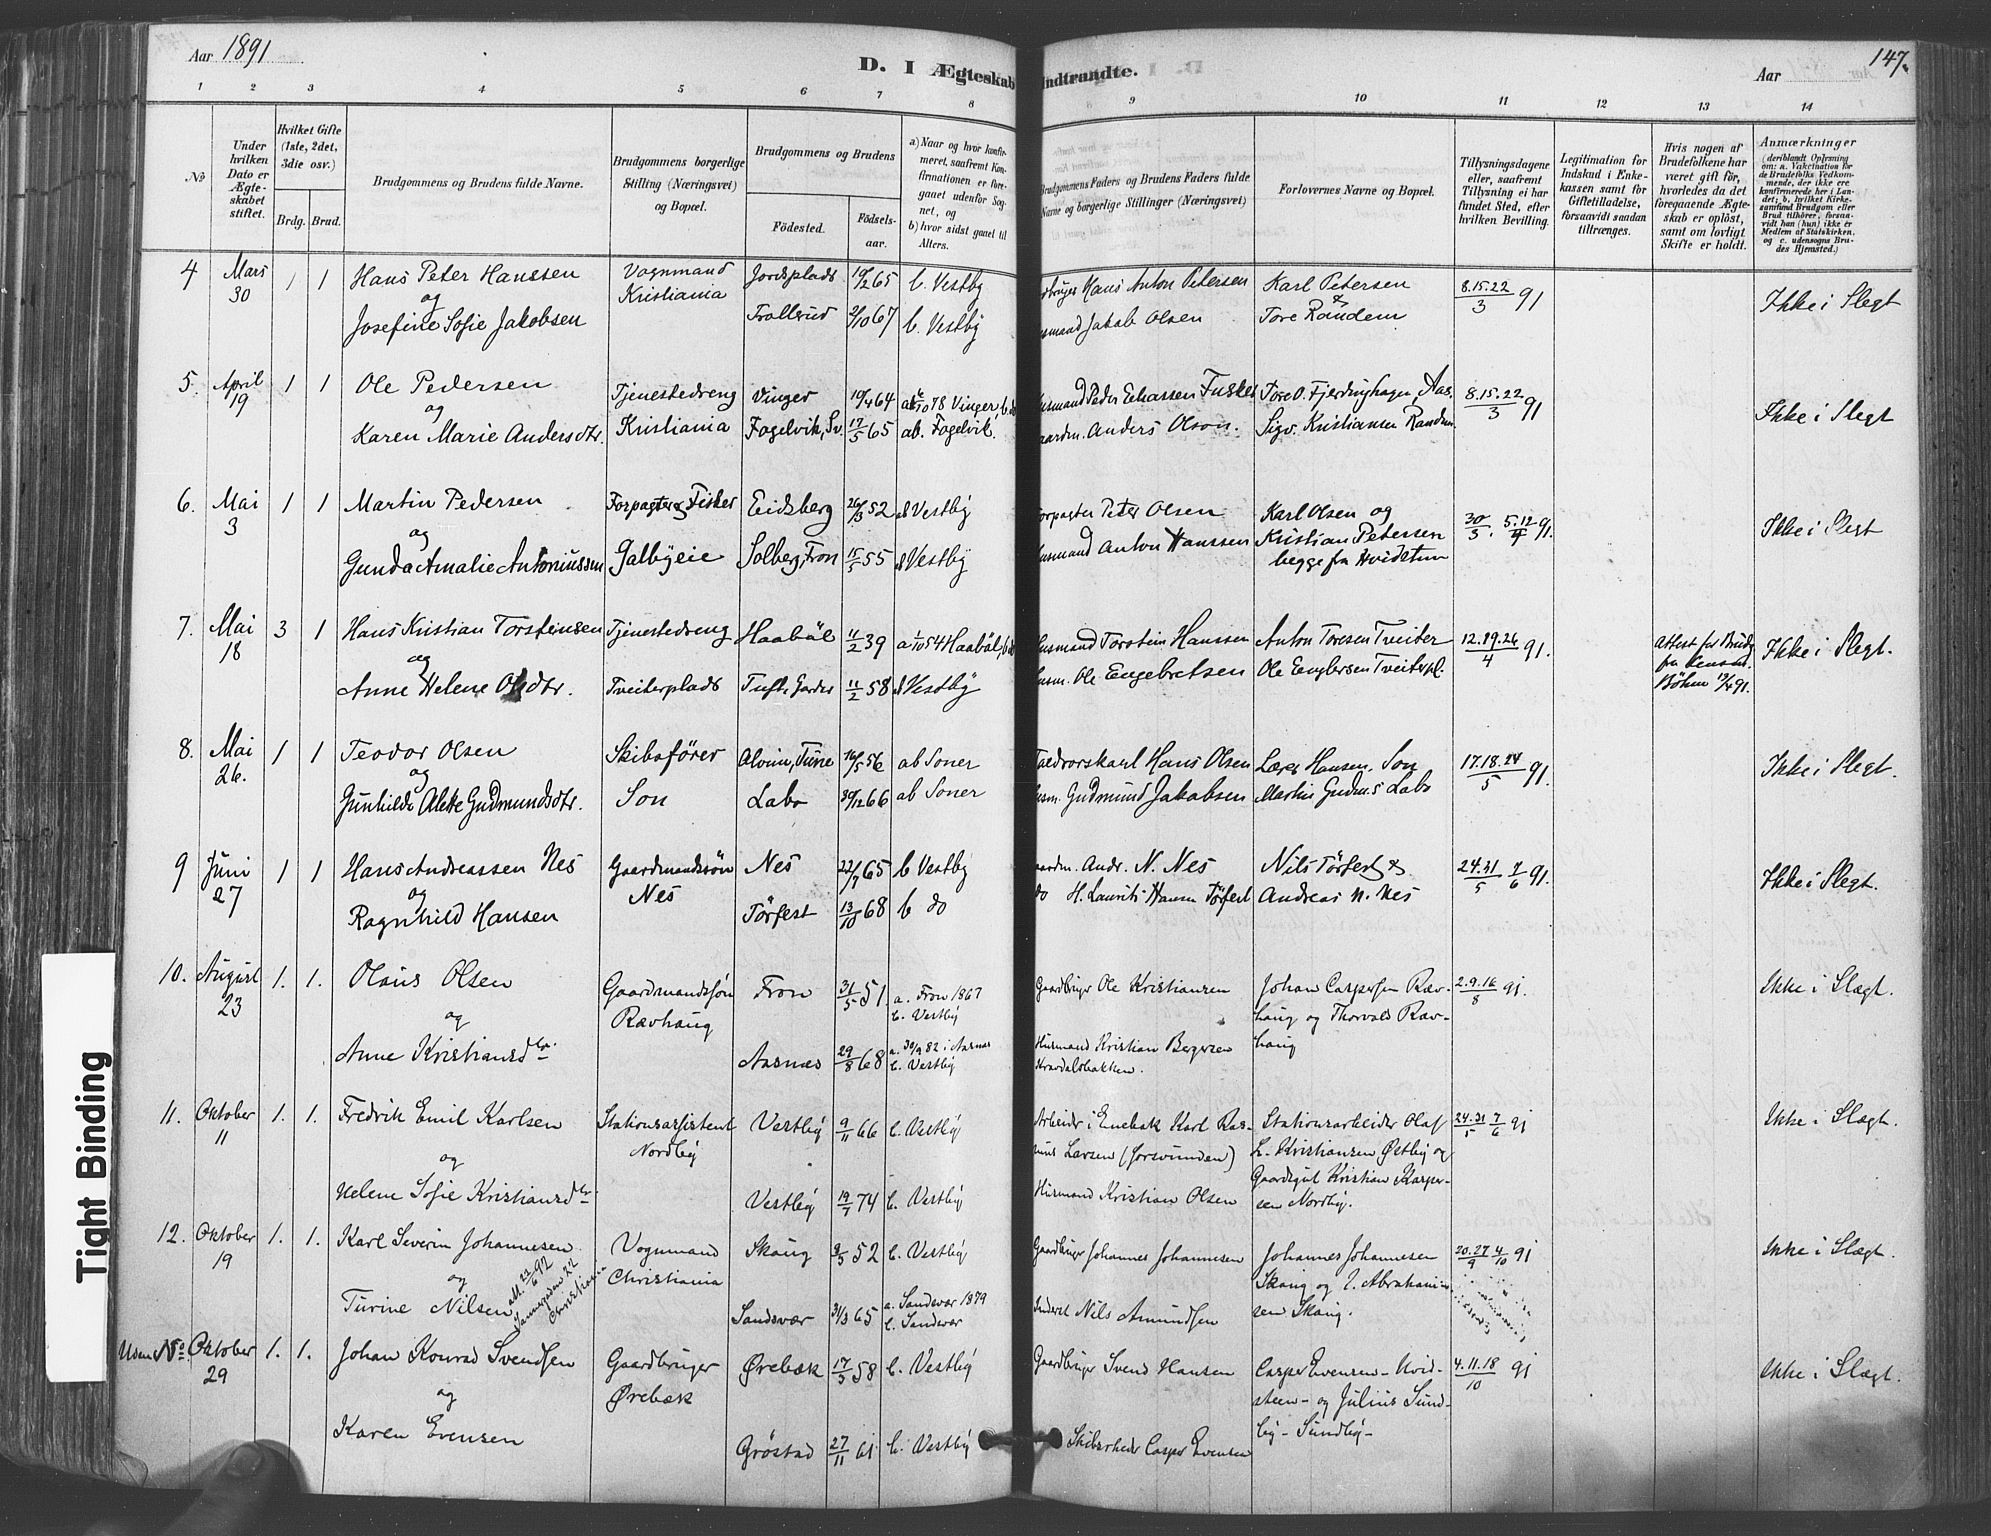 Aar 1891
D. I Ægteskab Indtraadte.
Aar 147.
1 2 3 4 5 6 7 8 9 10 11 12 13 14
No
Under hvilken Dato er Ægteskabet stiftet.
Hvilket Gifte (1ste, 2det, 3die osv.)
Brdg. Brud.
Brudgommens og Brudens fulde Navne.
Brudgommens borgerlige Stilling (Næringsvei) og Bopæl.
Brudgommens og Brudens
Födested. Födsels-aar.
a) Naar og hvor konfirmeret, saafremt Konfirmationen er foregaaet udenfor Sognet, og
b) hvor sidst gaaet til Alters.
Brudgommens Faders og Brudens Faders fulde Navne og borgerlige Stillinger (Næringsvei)
Forlovernes Navne og Bopæl.
Tillysningsdagene eller, saafremt Tillysning ei har fundet Sted, efter hvilken Bevilling.
Legitimation for Indskud i Enkekassen samt for Giftetilladelse, forsaavidt saadan tiltrænges.
Hvis nogen af Brudefolkene har været gift för, hvorledes da det foregaaende Ægteskab er oplöst, samt om lovligt Skifte er holdt.
Anmærkninger
(deriblandt Oplysning om: a. Vakcination for Brudefolks Vedkommende, der ikke ere konfirmerede her i Landet; b. hvilket Kirkesamfund Brudgom eller Brud tilhörer, forsaavidt han (hun) ikke er Medlem af Statskirken, og c. udensogns Brudes Hjemsted.)
4 Mars 30 1 1 Hans Peter Hanssen og Josefine Sofie Jakobsen
Vognmand Kristiania
Jordsplads 19/2 65 b. Vestby
Trollerud 2/10 67 b. Vestby
Hans Anton Petersen
Jakob Olsen
Karl Petersen & Tore Randem
8.15.22/3 91
Ikke i Slegt
5. April 19 1 1 Ole Pedersen og Karen Marie Andersdtr.
Tjenestedreng Kristiania
Vinger 19/4 64 Vinger, b. do
Fogelvik, Sv. 17/5 65 ab. Fogelvik.
Anders Olson.
Tore O. Fjerdinghagen, Aas.
Sigv. Kristiansen Randem
8.15.22/3 91
Ikke i Slegt
6. Mai 3 1 1 Martin Pedersen og Gunda Amalie Antoniussen
Forpagter & Fisker Galbyeie
Eidsberg 26/3 52 Vestby
Solberg, Fron 15/5 55 Vestby
Forpagter Peter Olsen
Husmand Anton Hanssen
Karl Olsen og Kristian Petersen begge fra Hvidsten
30/3. 5.12/4 91.
Ikke i Slegt
7. Mai 18 3 1 Hans Kristian Torsteinsen og Anne Helene Olsdtr.
Tjenestedreng Tveiterplads
Haabøl 11/2 39 a 1/10 54 Haabøl, b. do
Tuft, Garder 11/2 58 Vestby
Husmand Torstein Hanssen
Husm. Ole Engebretsen
Anton Toresen Tveiter
Ole Englersen Tveiterpl.
12.19.26/4 91.
Attest for Brudg. fra Böhm 13/4 91.
Ikke i Slegt.
8. Mai 26. 1 1 Teodor Olsen og Gunhilde Alette Gudmundsdtr.
Skibsfører Son
Alvim, Tune 16/5 56 ab Soner
Labo 30/12 66 ab Soner
Hans Olsen
Husm. Gudmund Jakobsen
Lars Hansen, Son
Martin Gudm.s Labo
17.18.24/5 91.
Ikke i Slegt.
9 Juni 27 1 1 Hans Andreassen Nes og Ragnhild Hansen
Gaardmandssøn Nes
Nes 22/7 65 b Vestby
Tørfest 13/10 68 b do
Gaardm. Andr. N. Nes
do H. Laurits Hansen Tørfest
Nils Tørfest & Andreas N. Nes
24.31/5 7/6 91.
Ikke i Slegt.
10. August 23 1. 1. Olaus Olsen og Anne Kristiansdtr.
Gaardmandssøn Ravhaug
Fron 31/5 51 a. Fron 1867 b. Vestby
Aasnes 29/8 68 a. 30/9 82 i Aasnes b. Vestby
Gaardbruger Ole Kristiansen
Husmand Kristian Bergersen Kravdalsbakken.
Johan Caspersen Ravhaug og Thorvald Ravhaug
2.9.16/8 91.
Ikke i Slægt.
11. Oktober 11 1. 1. Fredrik Emil Karlsen og Helene Sofie Kristiansdtr.
Stationsassistent Nordby
Vestby 9/11 66 b. Vestby
Vestby 19/7 74 b. Vestby
Arbeider i Enebak Karl Rasmus Larsen (forsvunden)
Husmand Kristian Olsen
Stationsarbeider Olaf L. Kristiansen Østby og Gaardsgut Kristian Kaspersen Nordby.
24.31/5 7/6 91
Ikke i Slægt.
12. Oktober 19 1. 1. Karl Severin Johannesen og Turine Nilsen
att. 22/6 92
Christiania
Vognmand Christiania
Skaug 9/5 52 b. Vestby
Sandsvær 31/3 65 a. Sandsvær 1879 b. Sandsvær
Gaardbruger Johannes Johannesen
Inderst Nils Amundsen
Johannes Johannesen Skaug og I. Abrahamsen Skaug.
20.27/9 4/10 91
Ikke i Slægt.
Uden No. Oktober 29 1. 1. Johan Konrad Svendsen og Karen Evensen
Gaardbruger Ørebæk
Ørebæk 17/3 58 b. Vestby
Grøstad 27/11 61 b. Vestby
Gaardbruger Svend Hansen
Skibsreder Casper Evensen
Casper Evensen - Hvidsteen - og Julius Sundby - Sundby -
4.11.18/10 91
Ikke i Slægt.
Tight Binding